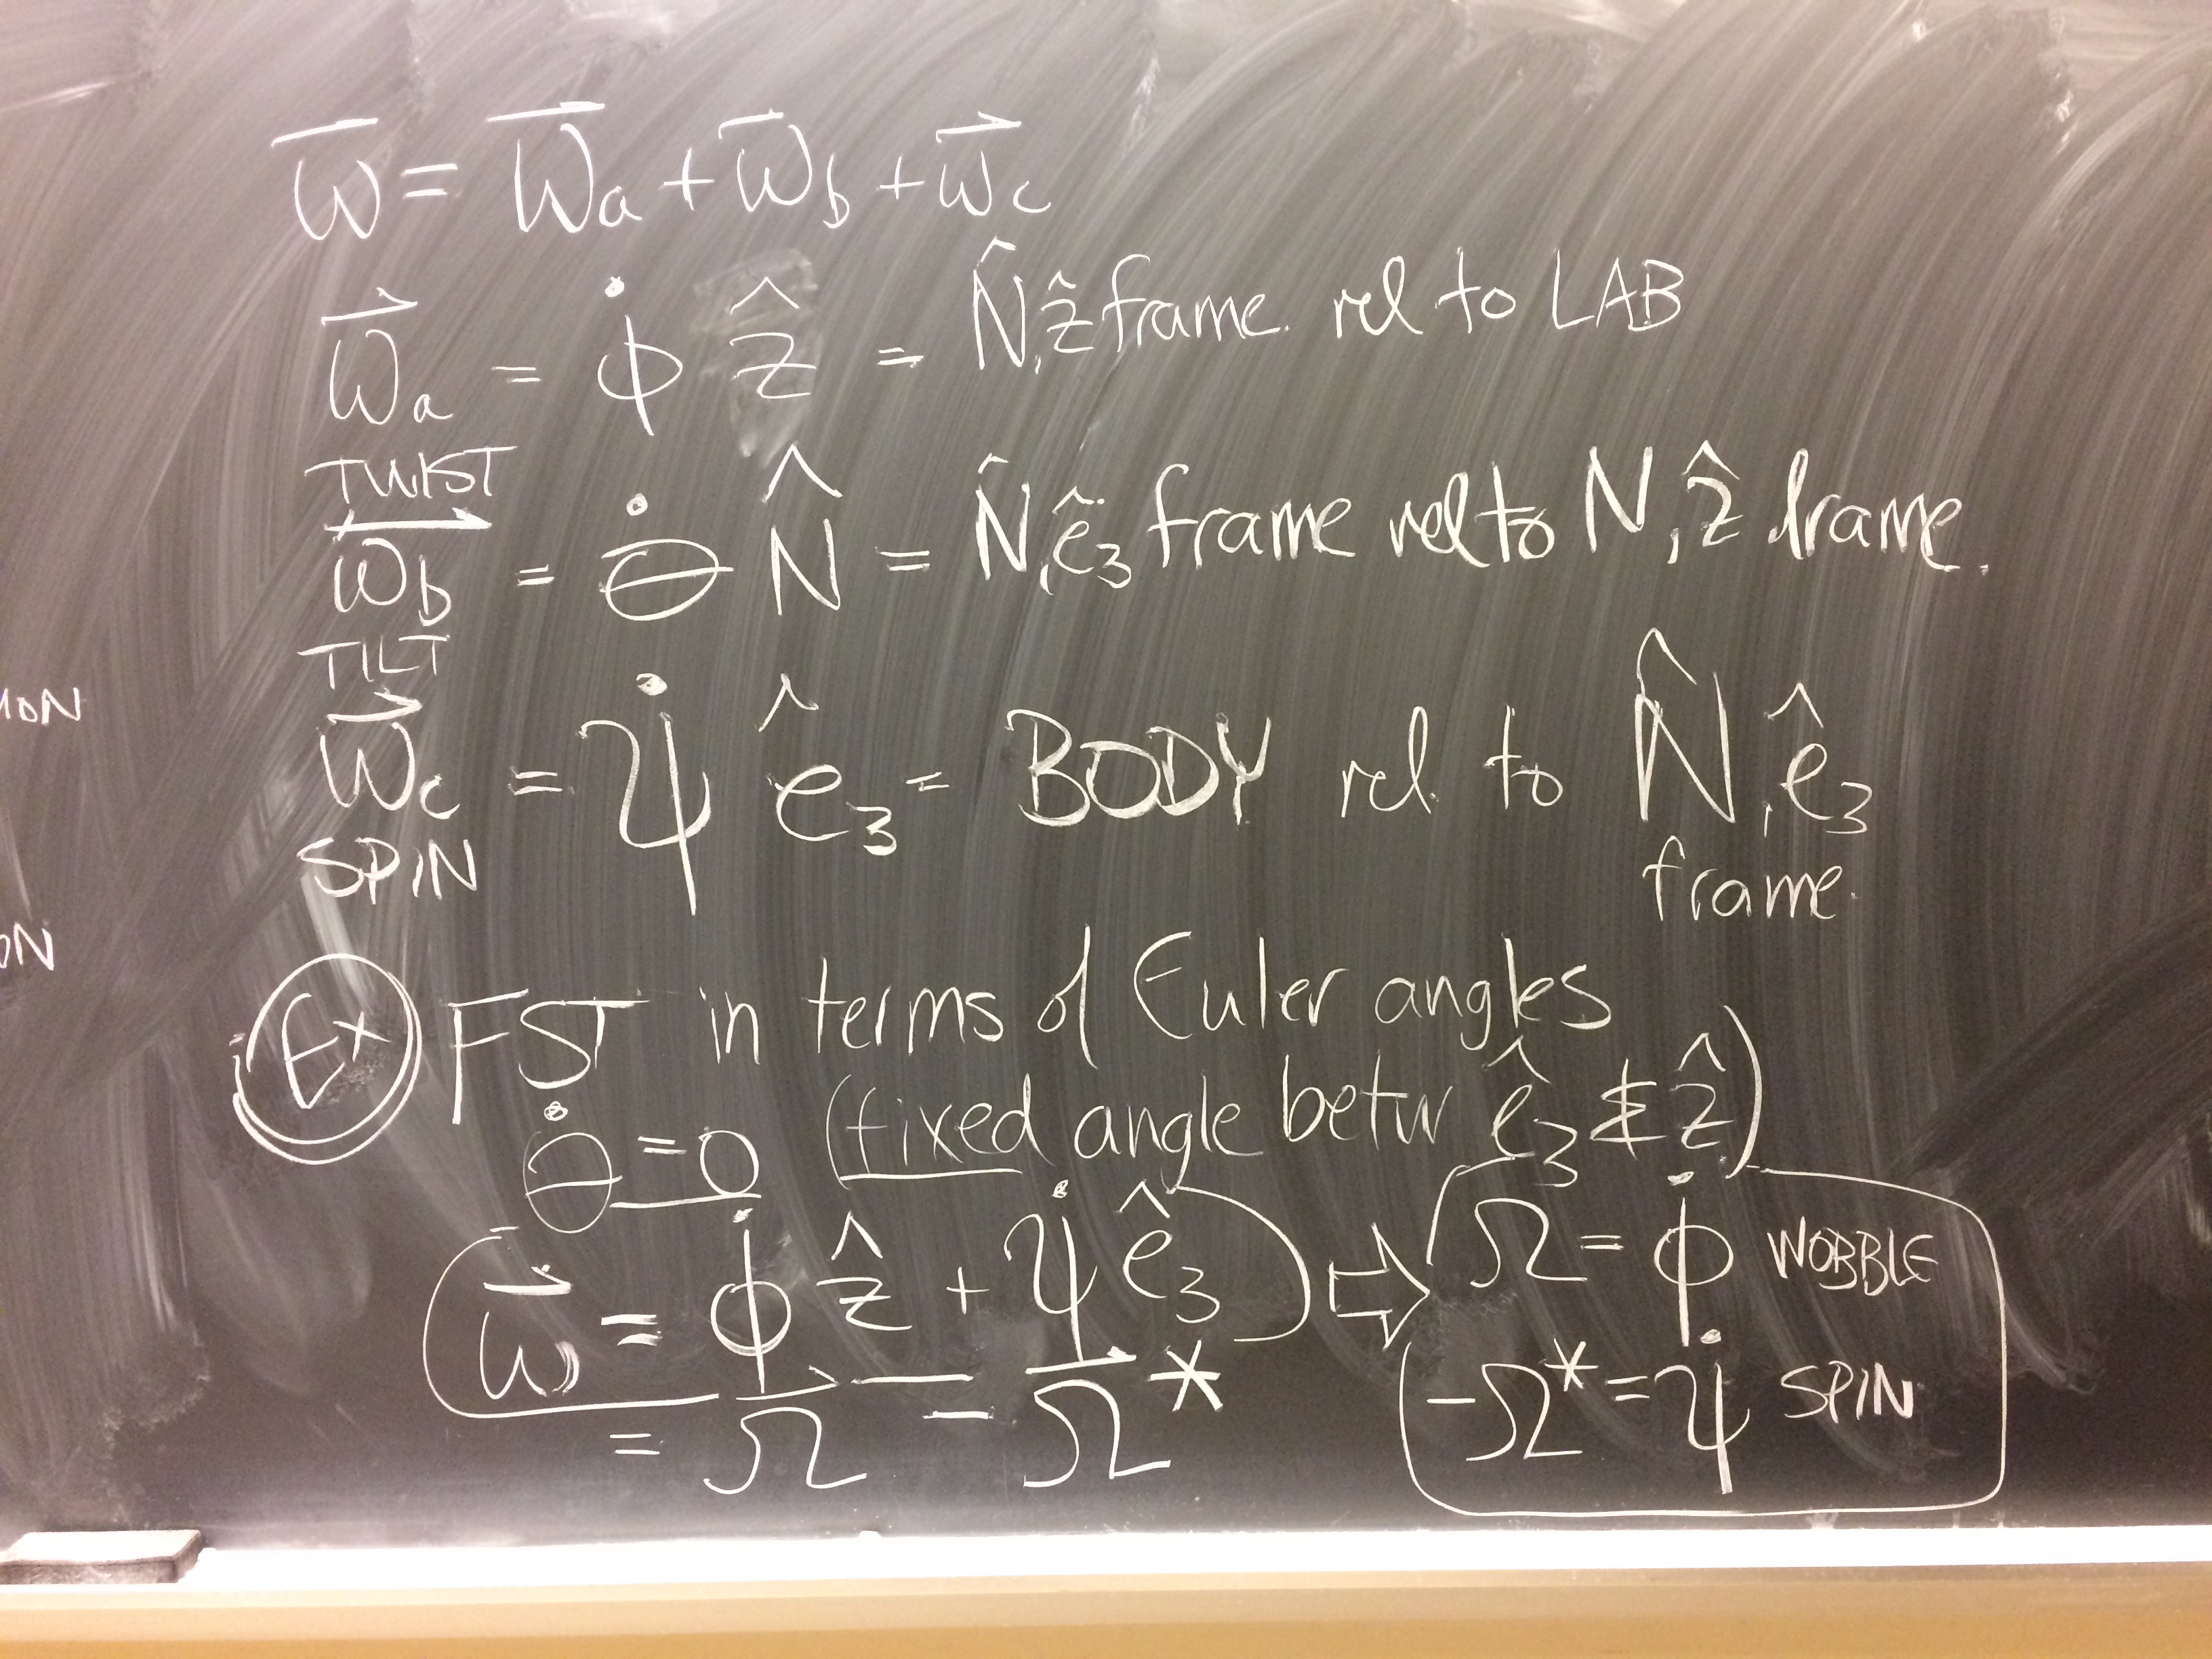 ω⃗ = ω⃗a + ω⃗b + ω⃗c
ω⃗a = φ̇ ẑ = N̂, ẑ frame. rel to LAB
TWIST
ω⃗b = θ̇ N̂ = N̂, ê3 frame rel to N, ẑ frame.
TILT
ω⃗c = ψ̇ ê3 = BODY rel to N̂, ê3
SPIN
frame.
Ex FST in terms of Euler angles
θ̇ = 0 (fixed angle betw ê3 & ẑ)
ω⃗ = φ̇ ẑ + ψ̇ ê3 ⇨ Ω = φ̇ WOBBLE
= Ω⃗ − Ω⃗* −Ω* = ψ̇ SPIN
ON